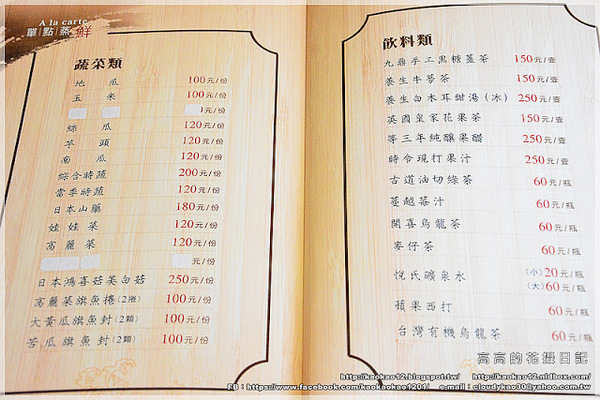 A la carte
單點蒸鮮
蔬菜類
地瓜 100元/份
玉米 100元/份
0元/份
絲瓜 120元/份
芋頭 120元/份
南瓜 120元/份
綜合時蔬 200元/份
當季時蔬 120元/份
日本山藥 180元/份
娃娃菜 120元/份
高麗菜 120元/份
元/份
日本鴻喜菇美白菇 250元/份
高麗菜旗魚捲(2捲) 100元/份
大黃瓜旗魚封(2顆) 100元/份
苦瓜旗魚封(2顆) 100元/份
飲料類
九鼎手工黑糖薑茶 150元/壺
養生牛蒡茶 150元/壺
養生白木耳甜湯(冰) 250元/壺
英國皇家花果茶 150元/壺
等三年純釀果醋 250元/壺
時令現打果汁 250元/壺
古道油切綠茶 60元/瓶
蔓越莓汁 60元/瓶
開喜烏龍茶 60元/瓶
麥仔茶 60元/瓶
悅氏礦泉水 (小)20元/瓶
(大)60元/瓶
蘋果西打 60元/瓶
台灣有機烏龍茶 60元/瓶
高高的花攝日記
http://kaokao12.blogspot.tw/ http://kaokao12.nidbox.com/
FB：https://www.facebook.com/kaokaokao1201/ e-mail：cloudykao30@yahoo.com.tw